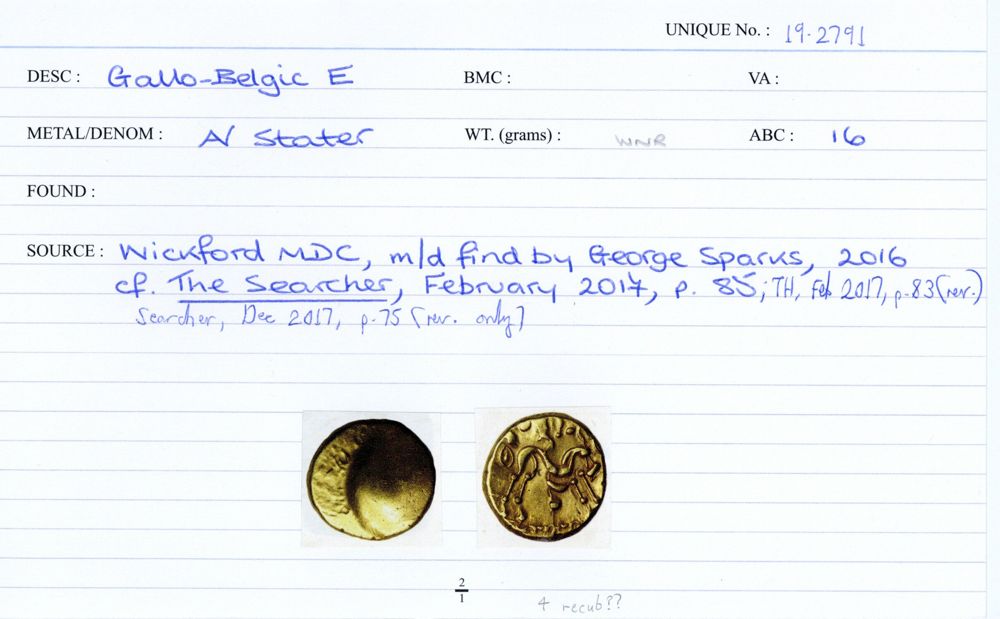 UNIQUE No. : 19.2791
DESC : Gallo-Belgic E BMC : VA :
METAL/DENOM : N Stater WT. (grams) : WNR ABC : 16
FOUND :
SOURCE : Wickford MDC, m/d find by George Sparks, 2016
cf. The Searcher, February 2017, p. 85; TH, Feb 2017, p.83 (rev.)
Searcher, Dec 2017, p.75 (rev. only)
2
1
4 recub??